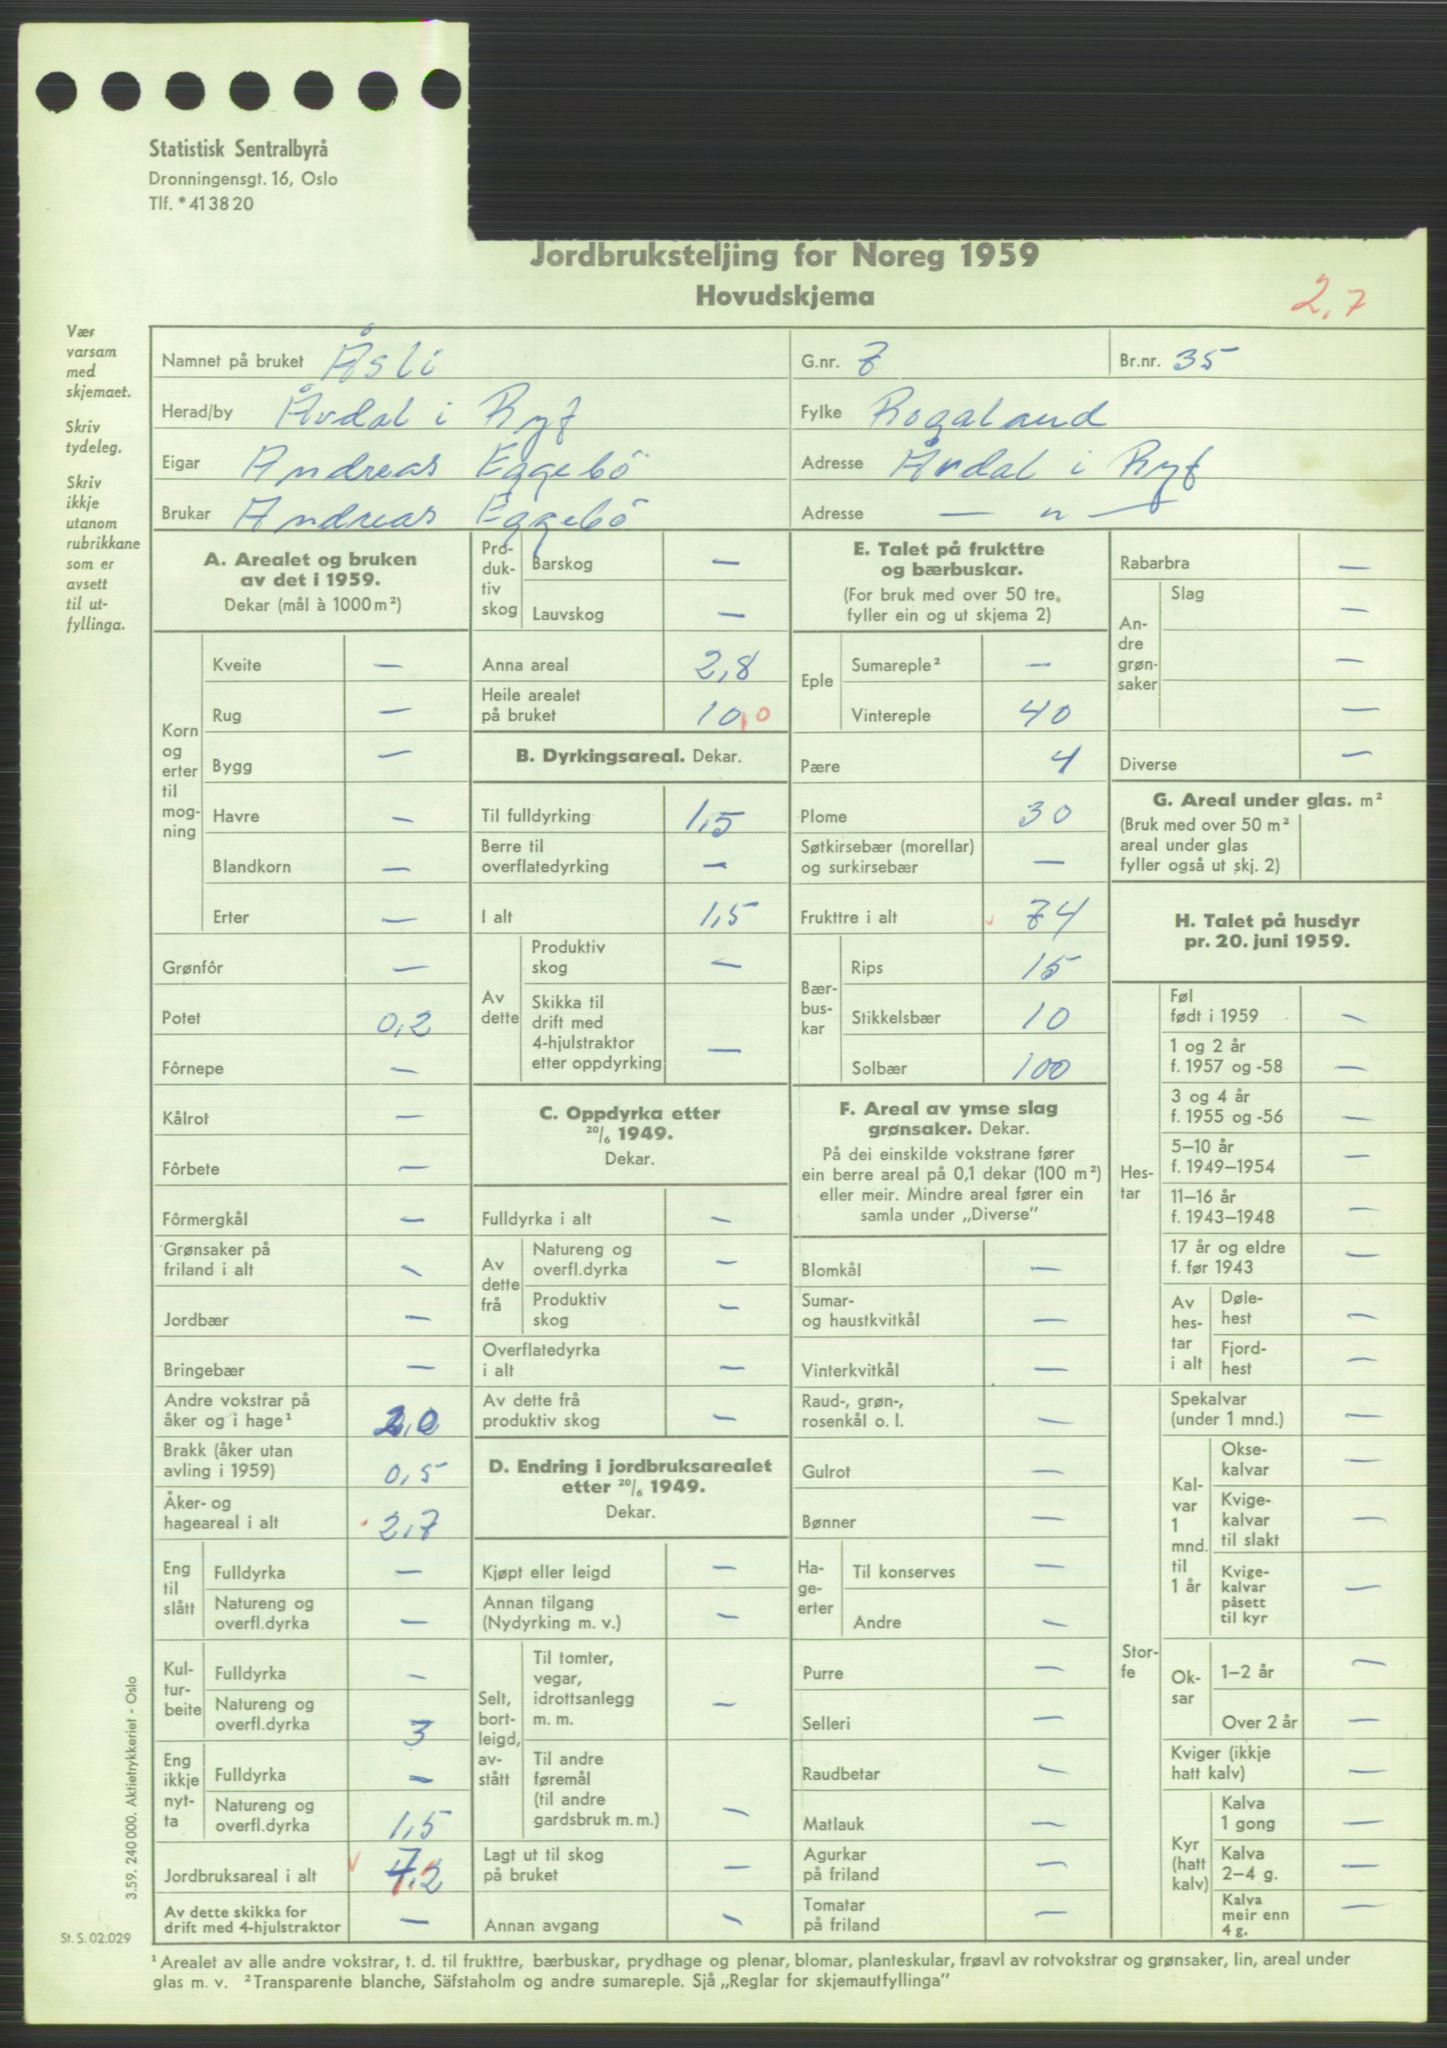 Statistisk Sentralbyrå
Dronningensgt. 16, Oslo
Tlf. *41 38 20
Jordbruksteljing for Noreg 1959
Hovudskjema
2,7
Vær
varsam
med
skjemaet.
Skriv
tydeleg.
Skriv
ikkje
utanom
rubrikkane
som er
avsett
til ut-
fyllinga.
Namnet på bruket Åsli G.nr. 7 Br.nr. 35
Herad/by Årdal i Ryf Fylke Rogaland
Eigar Andreas Eggebö Adresse Årdal i Ryf
Brukar Andreas Eggebö Adresse — " —
A. Arealet og bruken
av det i 1959.
Dekar (mål à 1000 m²)
Korn
og
erter
til
mog-
ning
Kveite —
Rug —
Bygg —
Havre —
Blandkorn —
Erter —
Grønfôr —
Potet 0,2
Fôrnepe —
Kålrot —
Fôrbete —
Fôrmergkål —
Grønsaker på
friland i alt —
Jordbær —
Bringebær —
Andre vokstrar på
åker og i hage¹ 2,0
Brakk (åker utan
avling i 1959) 0,5
Åker- og
hageareal i alt 2,7
Eng
til
slått
Fulldyrka —
Natureng og
overfl.dyrka —
Kul-
tur-
beite
Fulldyrka —
Natureng og
overfl.dyrka 3
Eng
ikkje
nyt-
ta
Fulldyrka —
Natureng og
overfl.dyrka 1,5
Jordbruksareal i alt 7,2
Av dette skikka for
drift med 4-hjulstraktor —
Pro-
duk-
tiv
skog
Barskog —
Lauvskog —
Anna areal 2,8
Heile arealet
på bruket 10,0
B. Dyrkingsareal. Dekar.
Til fulldyrking 1,5
Berre til
overflatedyrking —
I alt 1,5
Av
dette
Produktiv
skog —
Skikka til
drift med
4-hjulstraktor
etter oppdyrking —
C. Oppdyrka etter
20/6 1949.
Dekar.
Fulldyrka i alt —
Av
dette
frå
Natureng og
overfl.dyrka —
Produktiv
skog —
Overflatedyrka
i alt —
Av dette frå
produktiv skog —
D. Endring i jordbruksarealet
etter 20/6 1949.
Dekar.
Kjøpt eller leigd —
Annan tilgang
(Nydyrking m. v.) —
Selt,
bort-
leigd,
av-
stått
Til tomter,
vegar,
idrottsanlegg
m. m. —
Til andre
føremål
(til andre
gardsbruk m. m.) —
Lagt ut til skog
på bruket —
Annan avgang —
E. Talet på frukttre
og bærbuskar.
(For bruk med over 50 tre,
fyller ein og ut skjema 2)
Eple
Sumareple² —
Vintereple 40
Pære 4
Plome 30
Søtkirsebær (morellar)
og surkirsebær —
Frukttre i alt 74
Bær-
bus-
kar
Rips 15
Stikkelsbær 10
Solbær 100
F. Areal av ymse slag
grønsaker. Dekar.
På dei einskilde vokstrane fører
ein berre areal på 0,1 dekar (100 m²)
eller meir. Mindre areal fører ein
samla under „Diverse”
Blomkål —
Sumar-
og haustkvitkål —
Vinterkvitkål —
Raud-, grøn-,
rosenkål o. l. —
Gulrot —
Bønner —
Ha-
ge-
erter
Til konserves —
Andre —
Purre —
Selleri —
Raudbetar —
Matlauk —
Agurkar
på friland —
Tomatar
på friland —
Rabarbra —
An-
dre
grøn-
saker
Slag —
—
—
Diverse —
G. Areal under glas. m²
(Bruk med over 50 m²
areal under glas
fyller også ut skj. 2)
H. Talet på husdyr
pr. 20. juni 1959.
Hes-
tar
Føl
født i 1959 —
1 og 2 år
f. 1957 og -58 —
3 og 4 år
f. 1955 og -56 —
5–10 år
f. 1949–1954 —
11–16 år
f. 1943–1948 —
17 år og eldre
f. før 1943 —
Av
hes-
tar
i alt
Døle-
hest —
Fjord-
hest —
Stor-
fe
Spekalvar
(under 1 mnd.) —
Kal-
var
1
mnd.
til
1 år
Okse-
kalvar —
Kvige-
kalvar
til slakt —
Kvige-
kalvar
påsett
til kyr —
Ok-
sar
1–2 år —
Over 2 år —
Kviger (ikkje
hatt kalv) —
Kyr
(hatt
kalv)
Kalva
1 gong —
Kalva
2–4 g. —
Kalva
meir enn
4 g. —
3.59. 240 000. Aktietrykkeriet - Oslo
St. S. 02.029
¹ Arealet av alle andre vokstrar, t. d. til frukttre, bærbuskar, prydhage og plenar, blomar, planteskular, frøavl av rotvokstrar og grønsaker, lin, areal under
glas m. v. ² Transparente blanche, Säfstaholm og andre sumareple. Sjå „Reglar for skjemautfyllinga”